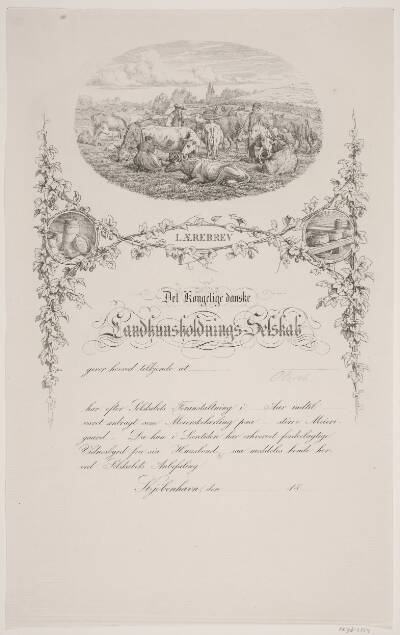 LÆREBREV
Det Kongelige danske
Landhuusholdnings-Selskab
gjører herved vitterligt at
har efter Selskabets Foranstaltning i Aar indtil
været antagen som Meierilærling paa større Meieri-
gaard. Da hun i Læretiden har erhvervet fordeelagtige
Vidnesbyrd fra sin Huusbond, saa meddeles hende her-
ved Selskabets Anbefaling
Kjøbenhavn, den 18